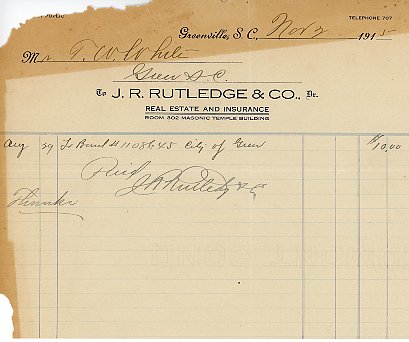 PUBLIC TELEPHONE 707
Greenville, S. C., Nov 2 1915
Mr T. W. White
Greer S. C.
To J. R. RUTLEDGE & CO., Dr.
REAL ESTATE AND INSURANCE
ROOM 302 MASONIC TEMPLE BUILDING
Aug 29 To Bond #1108645 City of Greer $10.00
Paid
J R Rutledge & Co
Thanks